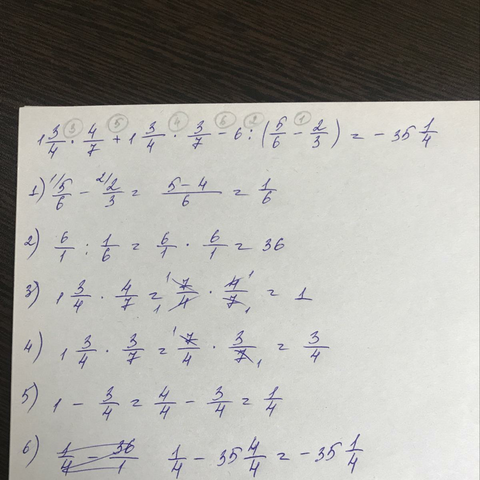 1 3/4 · 4/7 + 1 3/4 · 3/7 - 6 : (5/6 - 2/3) = - 35 1/4
1) 5/6 - 2/3 = 5-4/6 = 1/6
2) 6/1 : 1/6 = 6/1 · 6/1 = 36
3) 1 3/4 · 4/7 = 7/4 · 4/7 = 1
4) 1 3/4 · 3/7 = 7/4 · 3/7 = 3/4
5) 1 - 3/4 = 4/4 - 3/4 = 1/4
6) 1/4 - 36/1 1/4 - 35 4/4 = - 35 1/4